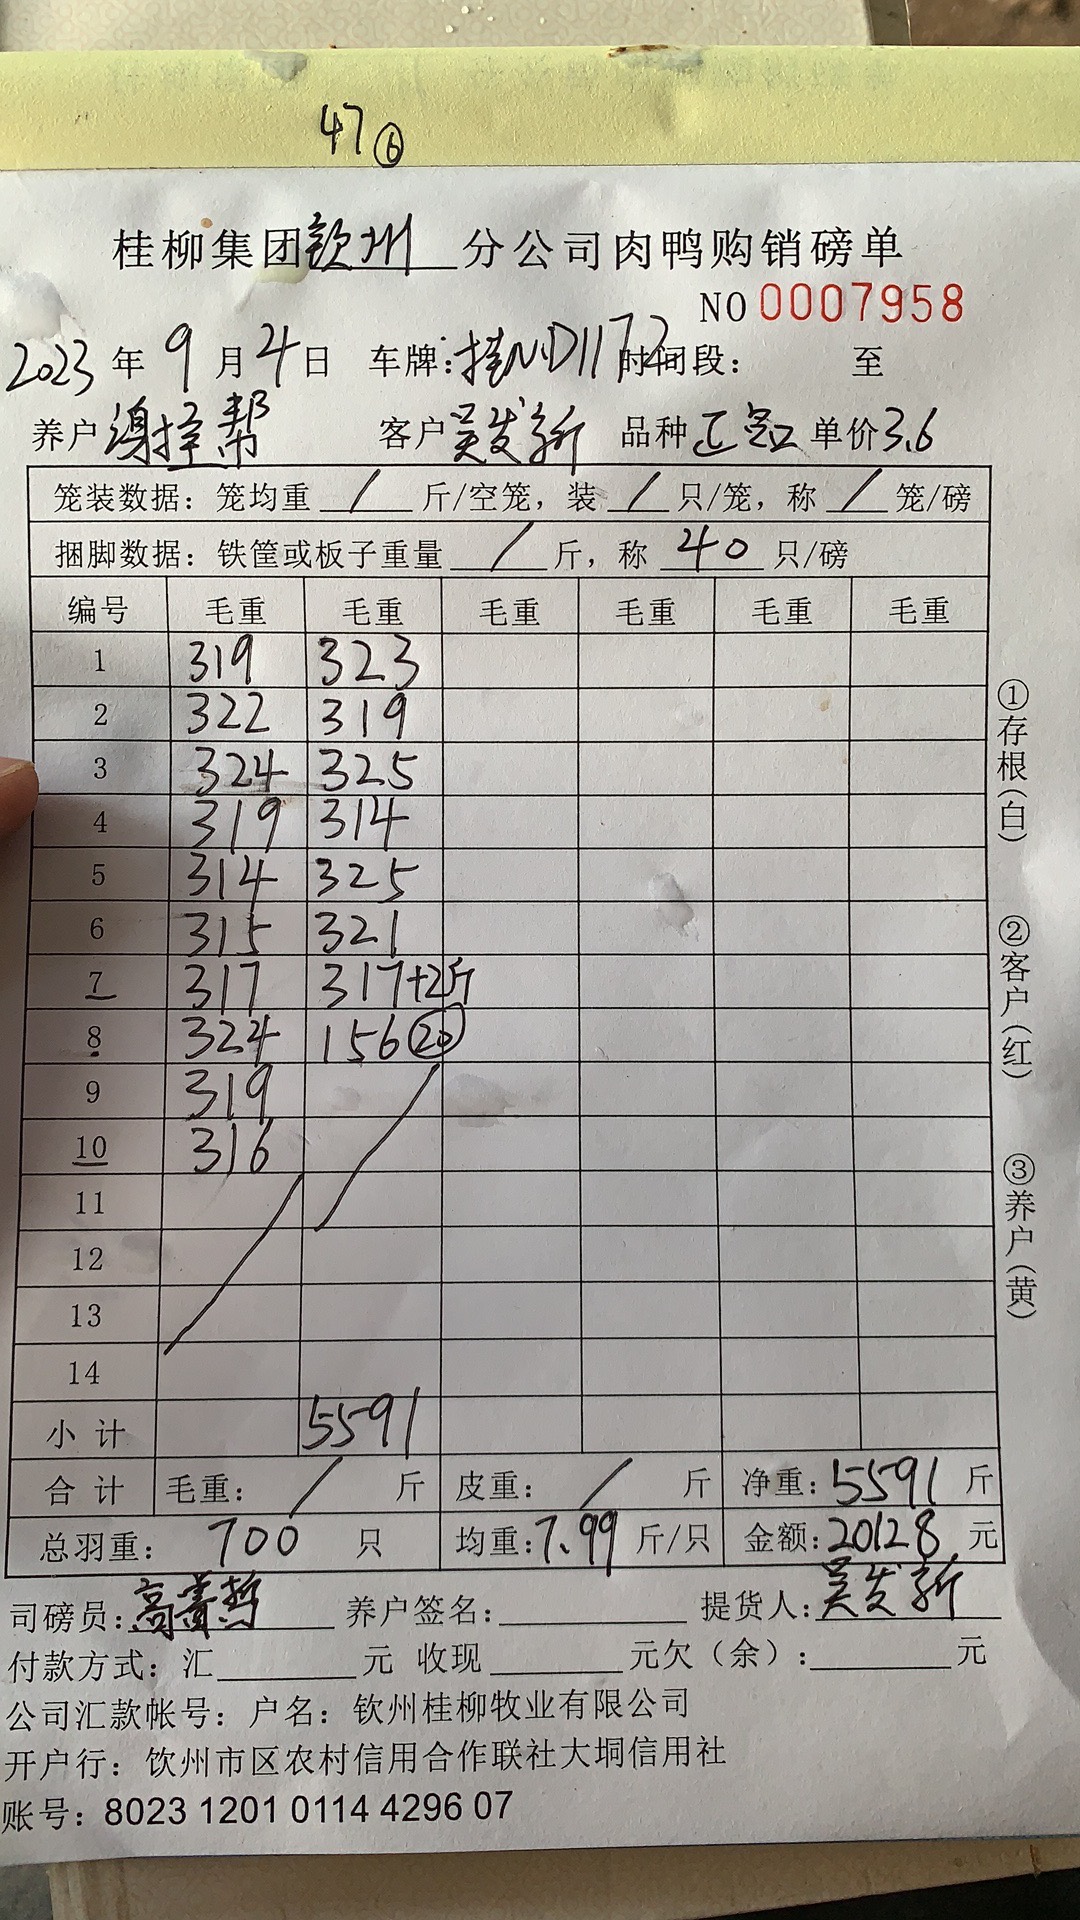 47⑥
桂柳集团钦州分公司肉鸭购销磅单
NO 0007958
2023年9月4日 车牌:桂ND1172时间段: 至
养户 帮 客户吴发新 品种 单价3.6
笼装数据:笼均重 / 斤/空笼,装 / 只/笼,称 / 笼/磅
捆脚数据:铁筐或板子重量 / 斤,称 40 只/磅
编号 毛重 毛重 毛重 毛重 毛重 毛重
1 319 323
2 322 319
3 324 325
4 319 314
5 314 325
6 315 321
7 317 317+2斤
8 324 156⑳
9 319
10 316
11
12
13
14
小计 5591
合计 毛重: / 斤 皮重: / 斤 净重:5591斤
总羽重: 700 只 均重:7.99斤/只 金额:20128元
司磅员:高 哲 养户签名: 提货人:吴发新
付款方式:汇 元 收现 元欠(余): 元
公司汇款帐号:户名:钦州桂柳牧业有限公司
开户行:钦州市区农村信用合作联社大垌信用社
账号:8023 1201 0114 4296 07
①存根(白)
②客户(红)
③养户(黄)